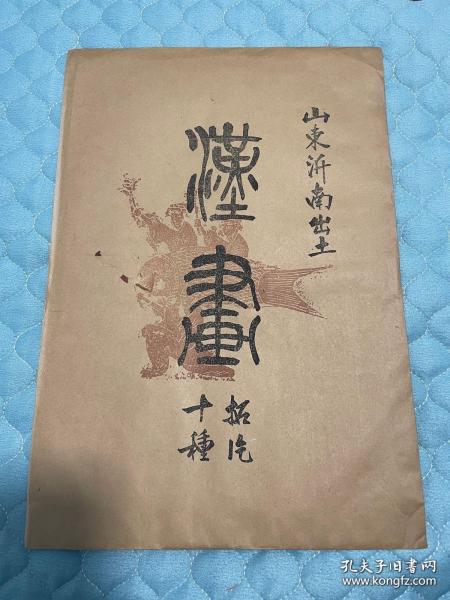 山東沂南出土
漢畫
拓片
十種
孔夫子旧书网
www.kongfz.com